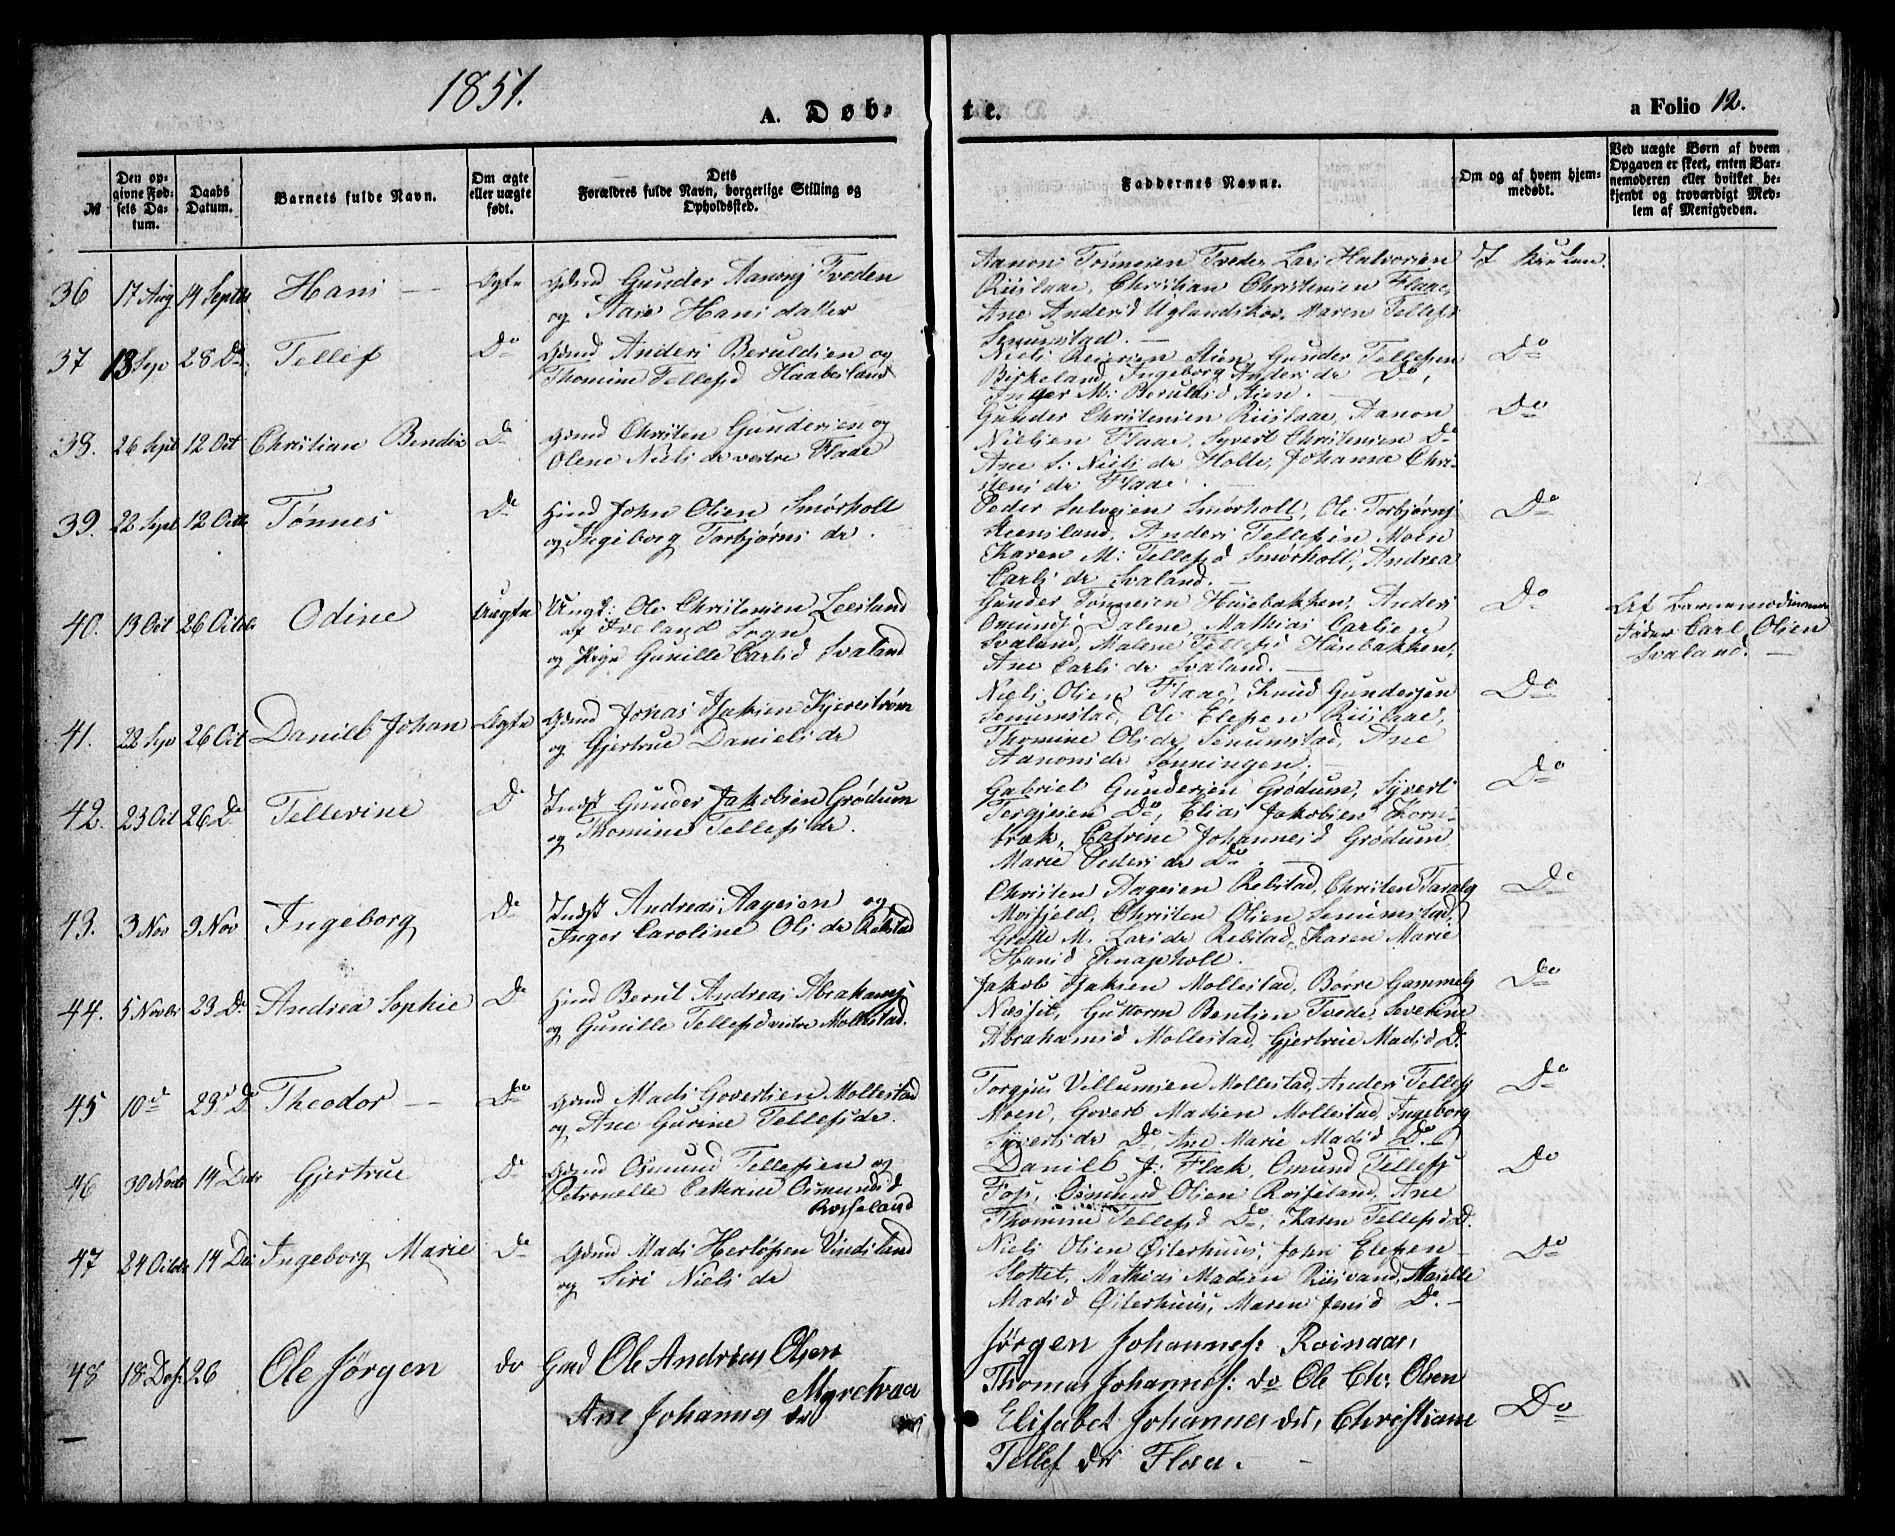 1851.
A. Døb-
te.
a Folio 12.
№
Den op-
givne Fød-
sels Da-
tum.
Daabs
Datum.
Barnets fulde Navn.
Om ægte
eller uægte
født.
Dets
Forældres fulde Navn, borgerlige Stilling og
Opholdssted.
Faddernes Navne.
Om og af hvem hjem-
medøbt.
Ved uægte Børn af hvem
Opgaven er skeet, enten Bar-
nemoderen eller hvilket be-
kjendt og troværdigt Med-
lem af Menigheden.
36 17 Aug 14 Septbr. Hans Ægte Gmd Gunder Aanonsj Tveden
og Marie Hansdatter
Aanon Tønnesen Tvede, Lars Halvorsen
Riislaae, Christian Christensen Flaae,
Ane Anders d Uglandskov, Maren Tellefs
Senumstad.
37 13 Sep 28 Do Tellef Do Gmd Anders Beruldsen og
Thomine Tellefsd Haabesland
Niels Reiersen Stien, Gunder Tellefsen
Birkeland, Ingeborg Anders dr Do,
Inger M: Berulds d Stien.
Do
38. 26 Sept 12 Oct Christian Bendix Do Gmd Christen Gundersen og
Olene Niels dr vestre Flaae
Gunder Christensen Riislaae, Aanon
Nielsen Flaae, Syvert Christensen Do
Ane S: Niels dr Holte, Johanne Chri-
stens dr Flaae.
Do
39. 22 Sept 12 Octb Tønnes Do Hmd John Olsen Smørholt
og Ingeborg Torbjørns dr.
Peder Salvesen Smørholt, Ole Torbjørnsj
Heensland, Anders Tellefsen Moen
Karen M: Tellefsd Smørholt, Andrea
Carls dr Svaland.
Do
40. 13 Oct 26 Octobr Odine Uægte Ungk: Ole Christensen Leesland
af Iveland Sogn
og Pige Gunille Carlsd Svaland
Gunder Tønnesen Husebakken, Anders
Osmunds Dalene, Mathias Carlsen
Svaland, Malene Tellefsd Husebakken,
Ane Carls dr Svaland.
Do
Af Barnemoderens
Fader Carl Olsen
Svaland.
41. 22 Sep 26 Oct Daniel Johan Ægte Gmd Jonas Isaksen Kjerestrøm
og Gjertrue Daniels dr
Niels Olsen Flaae, Knud Gundersen
Senumstad, Ole Elefsen Riislaae,
Thomine Ols dr Senumstad, Ane
Aanons dr Sønningen.
Do
42. 23 Oct 26 Do Tellevine Do Indst Gunder Jakobsen Grødum
og Thomine Tellefs dr.
Gabriel Gundersen Grødum, Syvert
Tergjesen Do, Elias Jakobsen Korn-
bræk, Catrine Johannes d Grødum,
Marie Peders dr Do.
Do
43. 3 Nov 9 Nov Ingeborg Do Indst Andreas Aagesen og
Inger Caroline Ols dr Rebstad
Christen Aagesen Rebstad, Christen Taralds
Mosfjeld, Christen Olsen Senumstad,
Grethe M. Lars dr Rebstad, Karen Marie
Hans d Knapholt.
Do
44. 5 Novbr 23 Do Andrea Sophie Do Hmd Bernt Andreas Abrahamsj
og Gunille Tellefsd vestre Mollestad.
Jakob Isaksen Mollestad, Børre Gammels
Næsset, Guttorm Bentsen Tvede, Severine
Abrahamsd Mollestad, Gjertrue Madsd Do
Do
45 10 do 23 Do Theodor Do Gmd Mads Govertsen Mollestad
og Ane Gurine Tellefsdr.
Torgjus Villumsen Mollestad, Anders Tellefs
Moen, Govert Madsen Mollestad, Ingeborg
Syverts dr Do, Ane Marie Madsd Do.
Do
46 30 Novbr 14 Decbr Gjertrue Do Gmd Osmund Tellefsen og
Petronelle Cathrine Osmundsd
Rosseland
Daniel J: Flak, Osmund Tellefs
Foss, Osmund Olsen Rosseland, Ane
Thomine Tellefsd Do, Karen Tellefsd D.
Do
47 24 Octobr 14 Dec Ingeborg Marie Do Gmd Mads Herlofsen Vindsland
og Siri Niels dr
Niels Olsen Østerhuus, John Elefsen
Slottet, Mathias Madsen Riisvand, Maselle
Mads d Østerhuus, Maren Jensd Do.
Do
48 18 Des: 26 Ole Jørgen do Gmd Ole Andreas Olsen
Myretraa
Ane Johannes dr
Jørgen Johannes: Roisnaas,
Thomas Johannes: do Ole Chr. Olsen
Elisabet Johannes dr, Christiane
Tellef dr Flaa.
Do